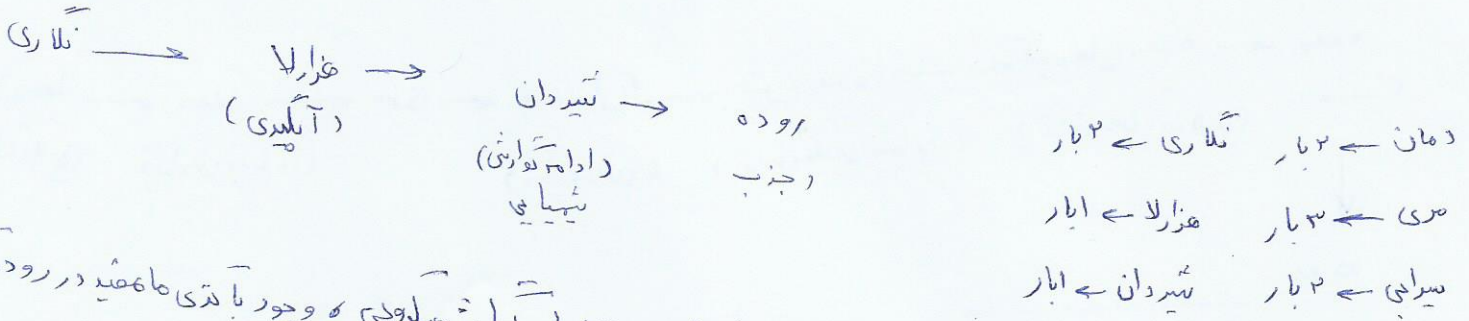 نگاری → هزارلا → شیردان → روده
(آبگیری) (ادامه گوارش شیمیایی) (جذب
دهان ← ۲ بار نگاری ← ۲ بار
مری ← ۳ بار هزارلا ← ۱ بار
سیرابی ← ۲ بار شیردان ← ۱ بار
وجود باکتری ها مفید در رود